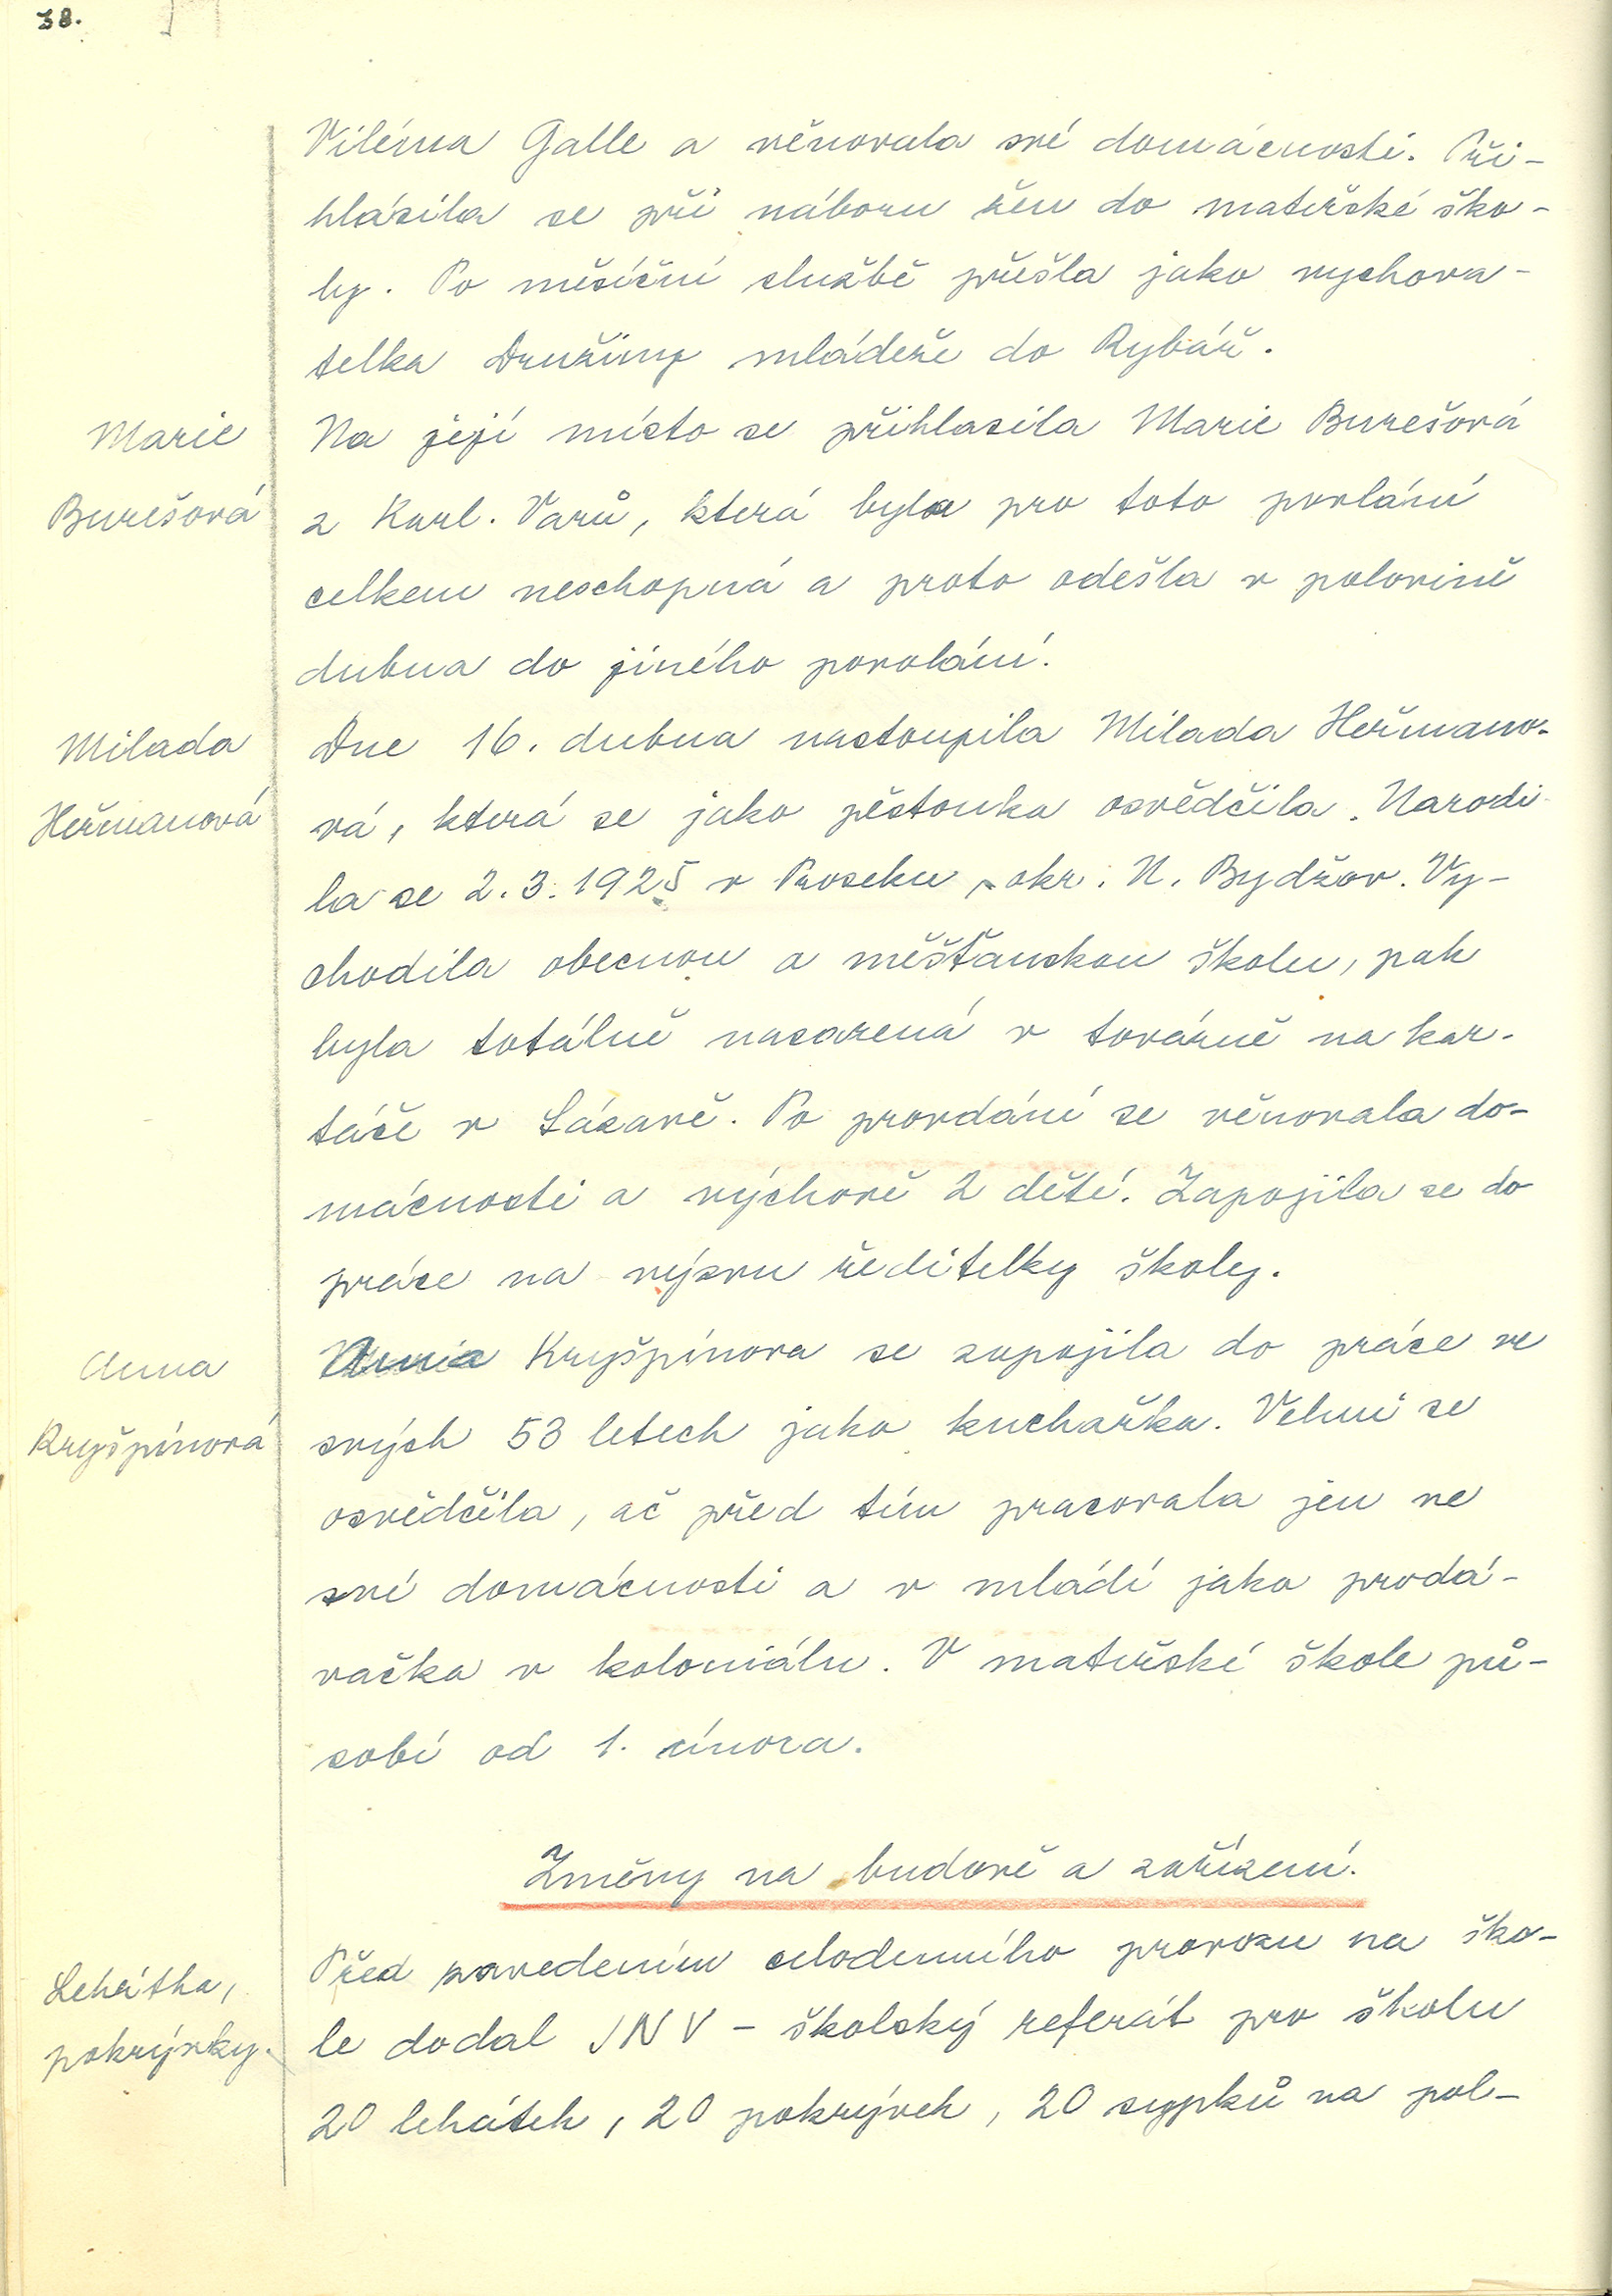 38.
Viléma Galle a věnovala své domácnosti. Při-
hlásila se při náboru žen do mateřské ško-
ly. Po měsíční službě přešla jako vychova-
telka Družiny mládeže do Rybář.
Marie
Burešová
Na její místo se přihlasila Marie Burešová
z Karl. Varů, která byla pro toto povlání
celkem neschopná a proto odešla v polovině
dubna do jiného povolání.
Milada
Heřmanová
Dne 16. dubna nastoupila Milada Heřmano-
vá, která se jako pěstounka osvědčila. Narodi-
la se 2.3.1925 v Proseku, okr. N. Bydžov. Vy-
chodila obecnou a měšťanskou školu, pak
byla totálně nasazená v továrně na kar-
táče v Sázavě. Po provdání se věnovala do-
mácnosti a výchově 2 dětí. Zapojila se do
práce na výzvu ředitelky školy.
Anna
Kryšpínová
Anna Kryšpínova se zapojila do práce ve
svých 53 letech jako kuchařka. Velmi se
osvědčila, ač před tím pracovala jen ve
své domácnosti a v mládí jako prodá-
vačka v koloniálu. V mateřské škole pů-
sobí od 1. února.
Změny na budově a zařízení.
Lehátka,
pokrývky.
Před zavedením celodenního provozu na ško-
le dodal JNV - školský referát pro školu
20 lehátek, 20 pokrývek, 20 sypků na pol-